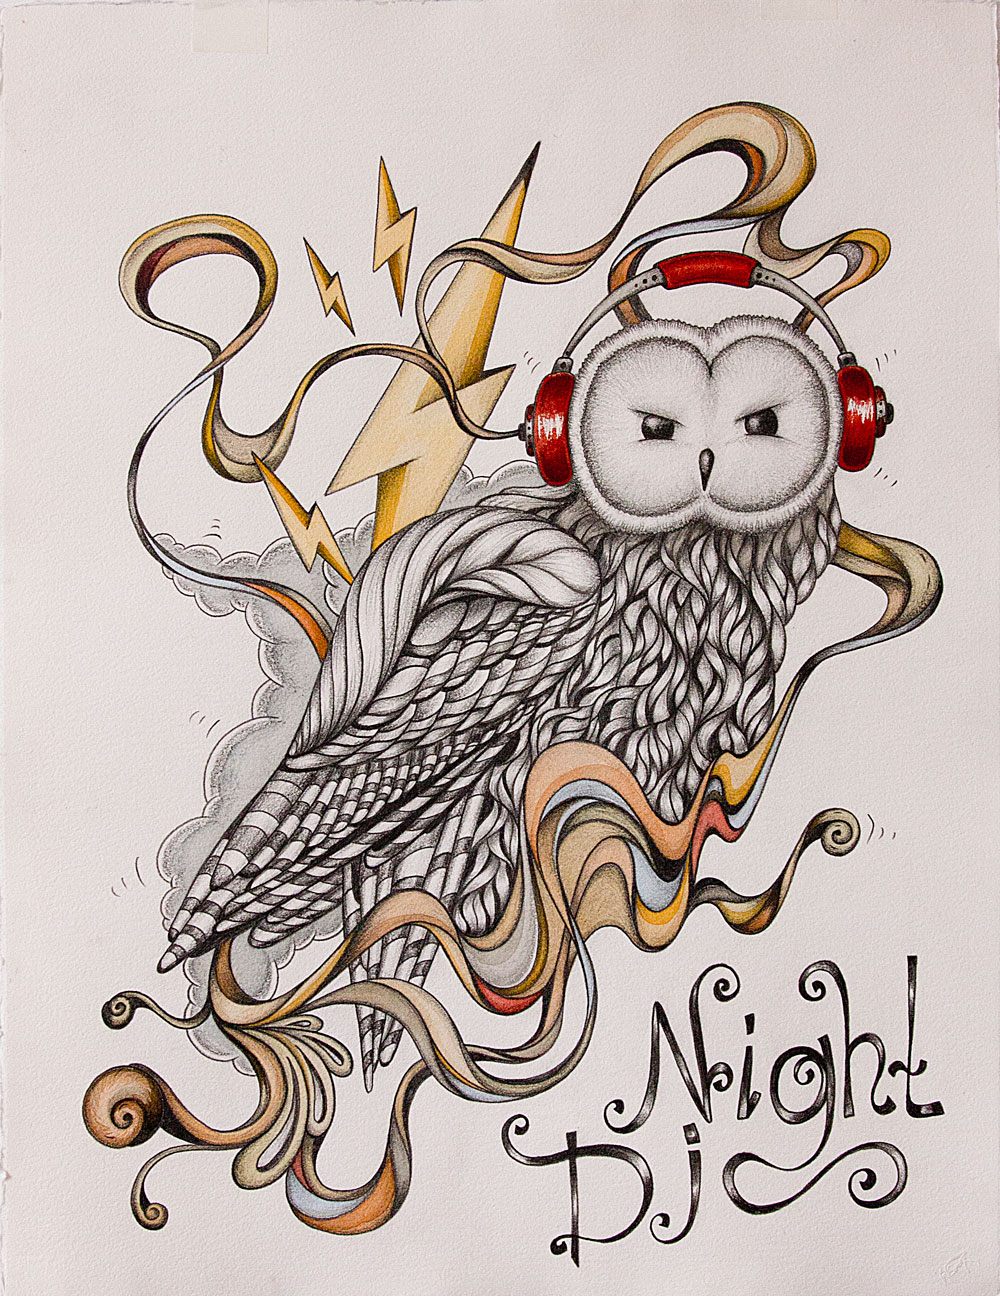 Night
Dj